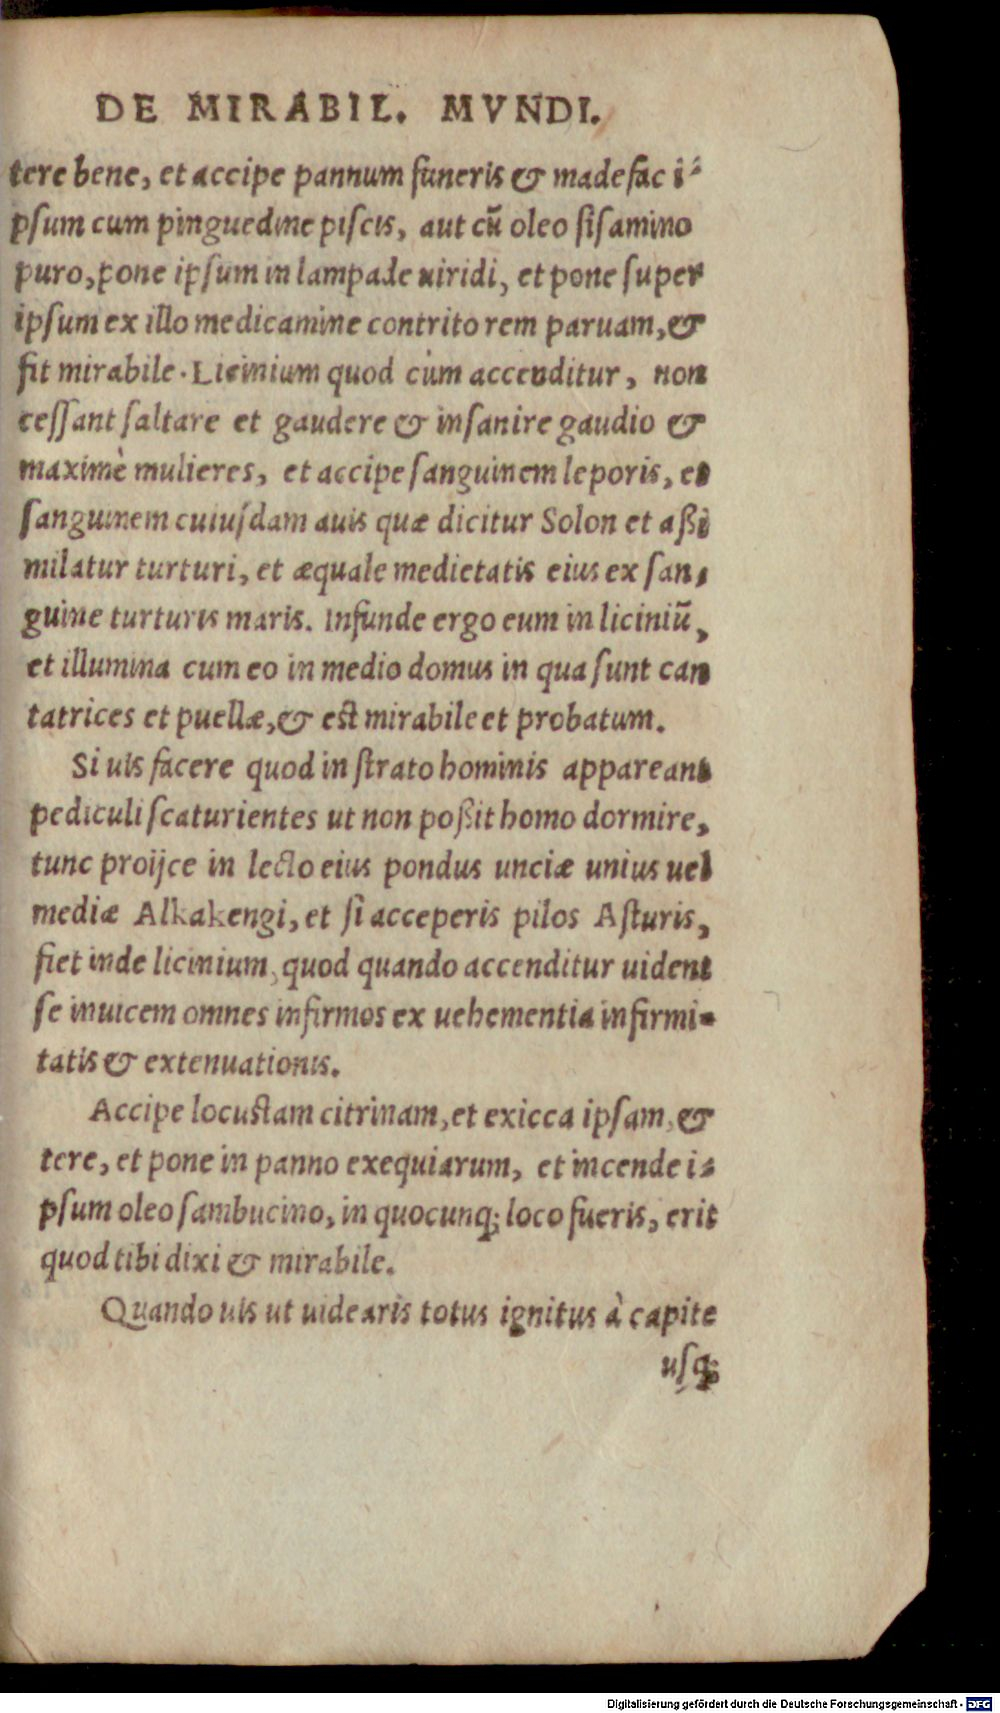 DE MIRABIL. MVNDI.
tere bene, et accipe pannum funeris & madefac i-
psum cum pinguedine piscis, aut cũ oleo sisamino
puro, pone ipsum in lampade uiridi, et pone super
ipsum ex illo medicamine contrito rem paruam, &
fit mirabile. Licinium quod cùm accenditur, non
cessant saltare et gaudere & insanire gaudio &
maximè mulieres, et accipe sanguinem leporis, et
sanguinem cuiusdam auis quæ dicitur Solon et aßi
milatur turturi, et æquale medietatis eius ex san,
guine turturis maris. Infunde ergo eum in liciniũ,
et illumina cum eo in medio domus in qua sunt can
tatrices et puellæ, & est mirabile et probatum.
Si uis facere quod in strato hominis appareant
pediculi scaturientes ut non poßit homo dormire,
tunc proijce in lecto eius pondus unciæ unius uel
mediæ Alkakengi, et si acceperis pilos Asturis,
fiet inde licinium, quod quando accenditur uident
se inuicem omnes infirmos ex uehementia infirmi-
tatis & extenuationis.
Accipe locustam citrinam, et exicca ipsam, &
tere, et pone in panno exequiarum, et incende i-
psum oleo sambucino, in quocunq; loco fueris, erit
quod tibi dixi & mirabile.
Quando uis ut uidearis totus ignitus à capite
usq;
Digitalisierung gefördert durch die Deutsche Forschungsgemeinschaft - DFG